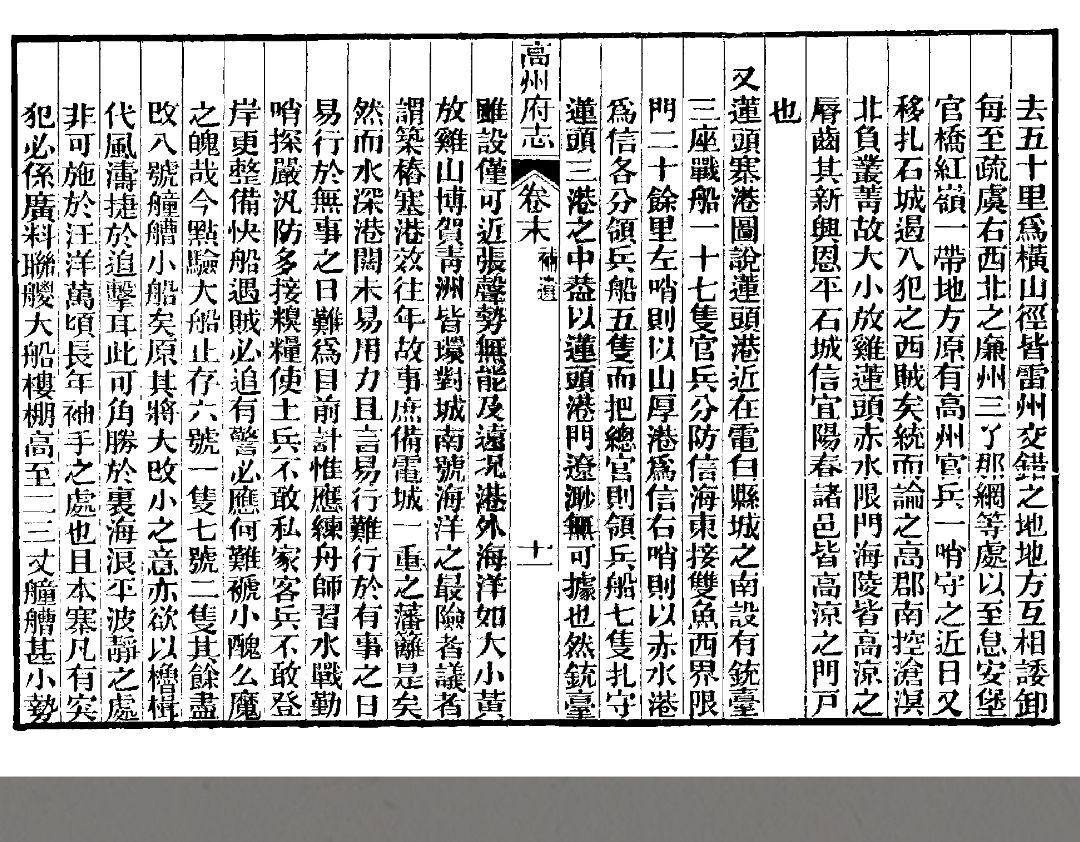 去五十里爲橫山徑皆雷州交錯之地地方互相諉卸
每至疏虞右西北之廉州三丫那綱等處以至息安堡
官橋紅嶺一帶地方原有高州官兵一哨守之近日又
移扎石城遏八犯之西賊矣統而論之高郡南控滄溟
北負叢菁故大小放雞蓮頭赤水限門海陵皆高涼之
脣齒其新興恩平石城信宜陽春諸邑皆高涼之門戸
也
又蓮頭寨港圖說蓮頭港近在電白縣城之南設有銃臺
三座戰船一十七隻官兵分防信海東接雙魚西界限
門二十餘里左哨則以山厚港爲信右哨則以赤水港
爲信各分領兵船五隻而把總官則領兵船七隻扎守
蓮頭三港之中葢以蓮頭港門遼渺無可據也然銃臺
高州府志 卷末 補遺 十一
雖設僅可近張聲勢無能及遠況港外海洋如大小黃
放雞山博賀靑洲皆環對城南號海洋之最險者議者
謂築樁塞港效往年故事庶備電城一重之藩籬是矣
然而水深港闊未易用力且言易行難行於有事之日
易行於無事之日難爲目前計惟應練舟師習水戰勤
哨探嚴汛防多接糗糧使土兵不敢私家客兵不敢登
岸更整備快船遇賊必追有警必應何難褫小醜么魔
之魄哉今點驗大船止存六號一隻七號二隻其餘盡
改八號艟艚小船矣原其將大改小之意亦欲以櫓楫
代風濤捷於追擊耳此可角勝於裏海浪平波靜之處
非可施於汪洋萬頃長年袖手之處也且本寨凡有突
犯必係廣料聯艘大船樓棚高至二三丈艟艚甚小勢